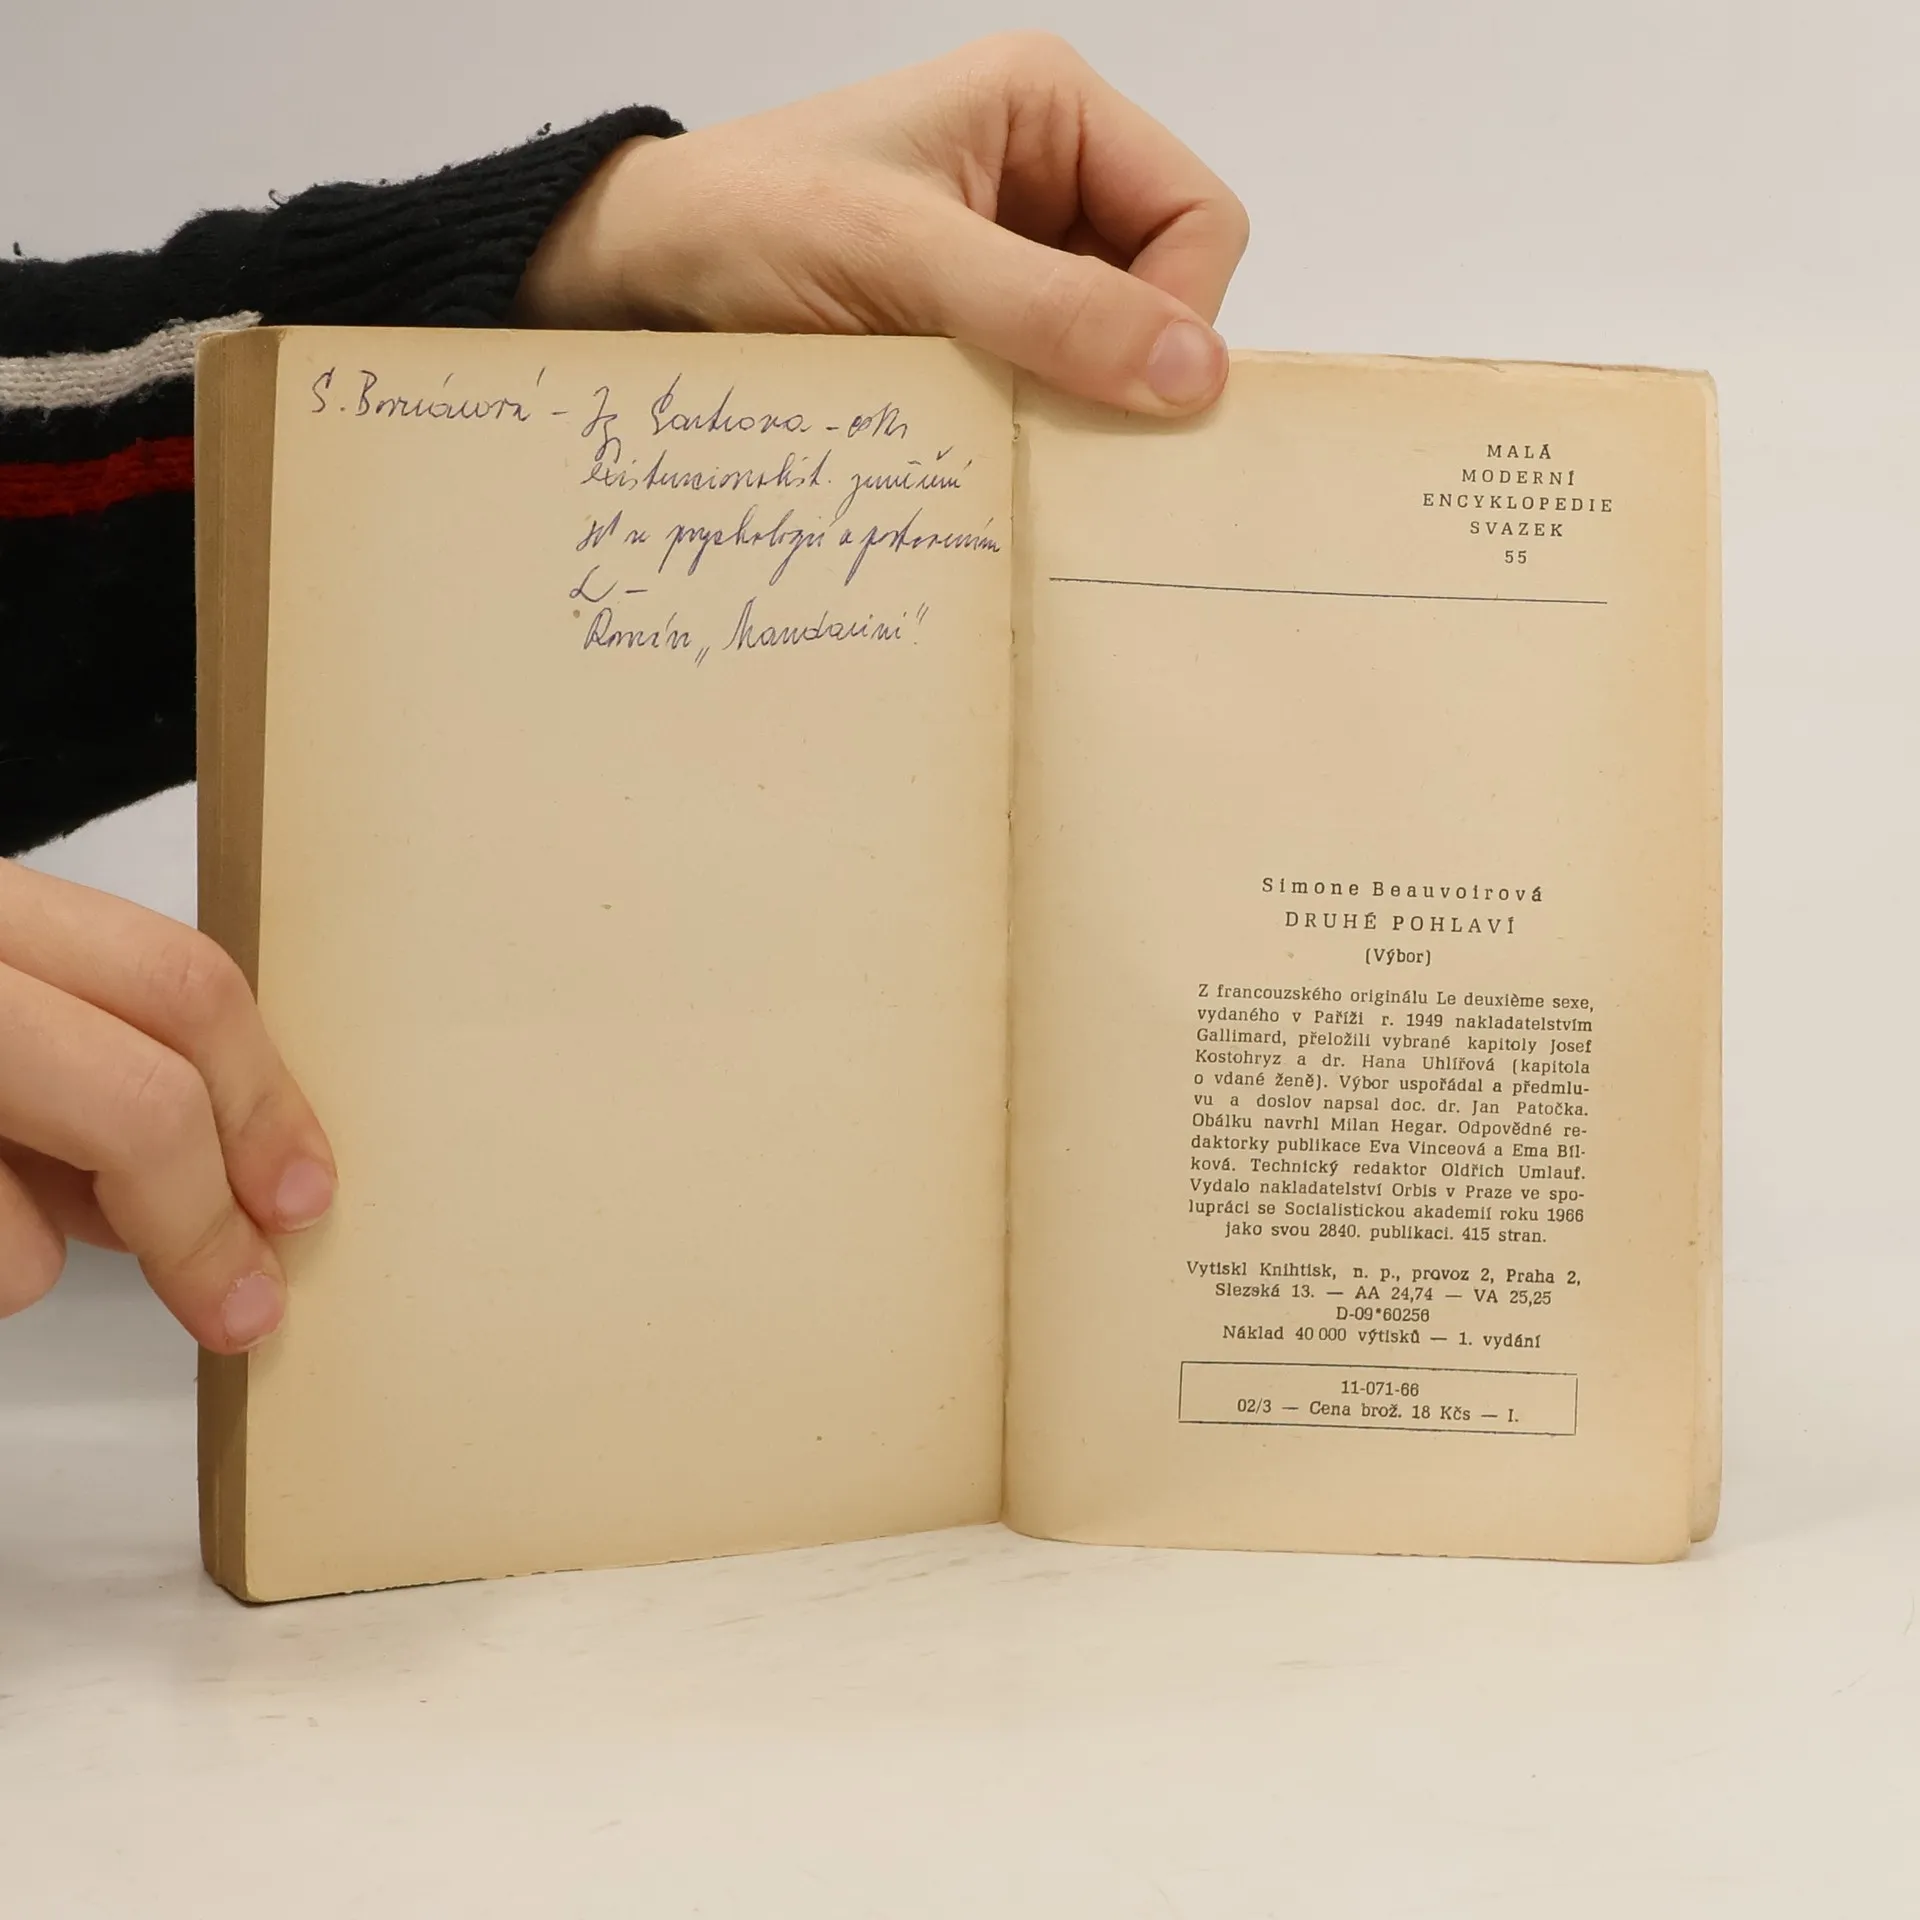 Román „Mandarini"
MALÁ
MODERNÍ
ENCYKLOPEDIE
SVAZEK
55
Simone Beauvoirová
DRUHÉ POHLAVÍ
(Výbor)
Z francouzského originálu Le deuxième sexe,
vydaného v Paříži r. 1949 nakladatelstvím
Gallimard, přeložili vybrané kapitoly Josef
Kostohryz a dr. Hana Uhlířová (kapitola
o vdané ženě). Výbor uspořádal a předmlu-
vu a doslov napsal doc. dr. Jan Patočka.
Obálku navrhl Milan Hegar. Odpovědné re-
daktorky publikace Eva Vinceová a Ema Bíl-
ková. Technický redaktor Oldřich Umlauf.
Vydalo nakladatelství Orbis v Praze ve spo-
lupráci se Socialistickou akademií roku 1966
jako svou 2840. publikaci. 415 stran.
Vytiskl Knihtisk, n. p., provoz 2, Praha 2,
Slezská 13. — AA 24,74 — VA 25,25
D-09*60256
Náklad 40 000 výtisků — 1. vydání
11-071-66
02/3 — Cena brož. 18 Kčs — I.